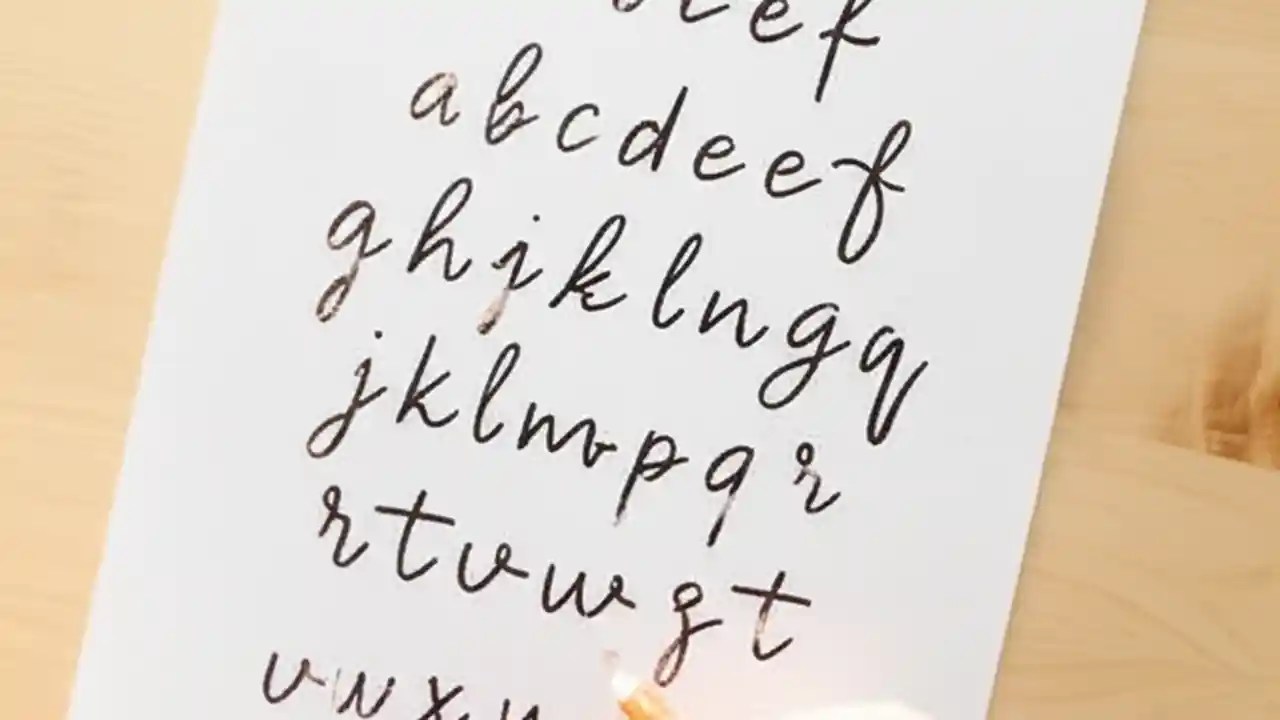 e f
a b c d e e f
g h j k l n g q
j k l m p q r
r t v w g t
v w x